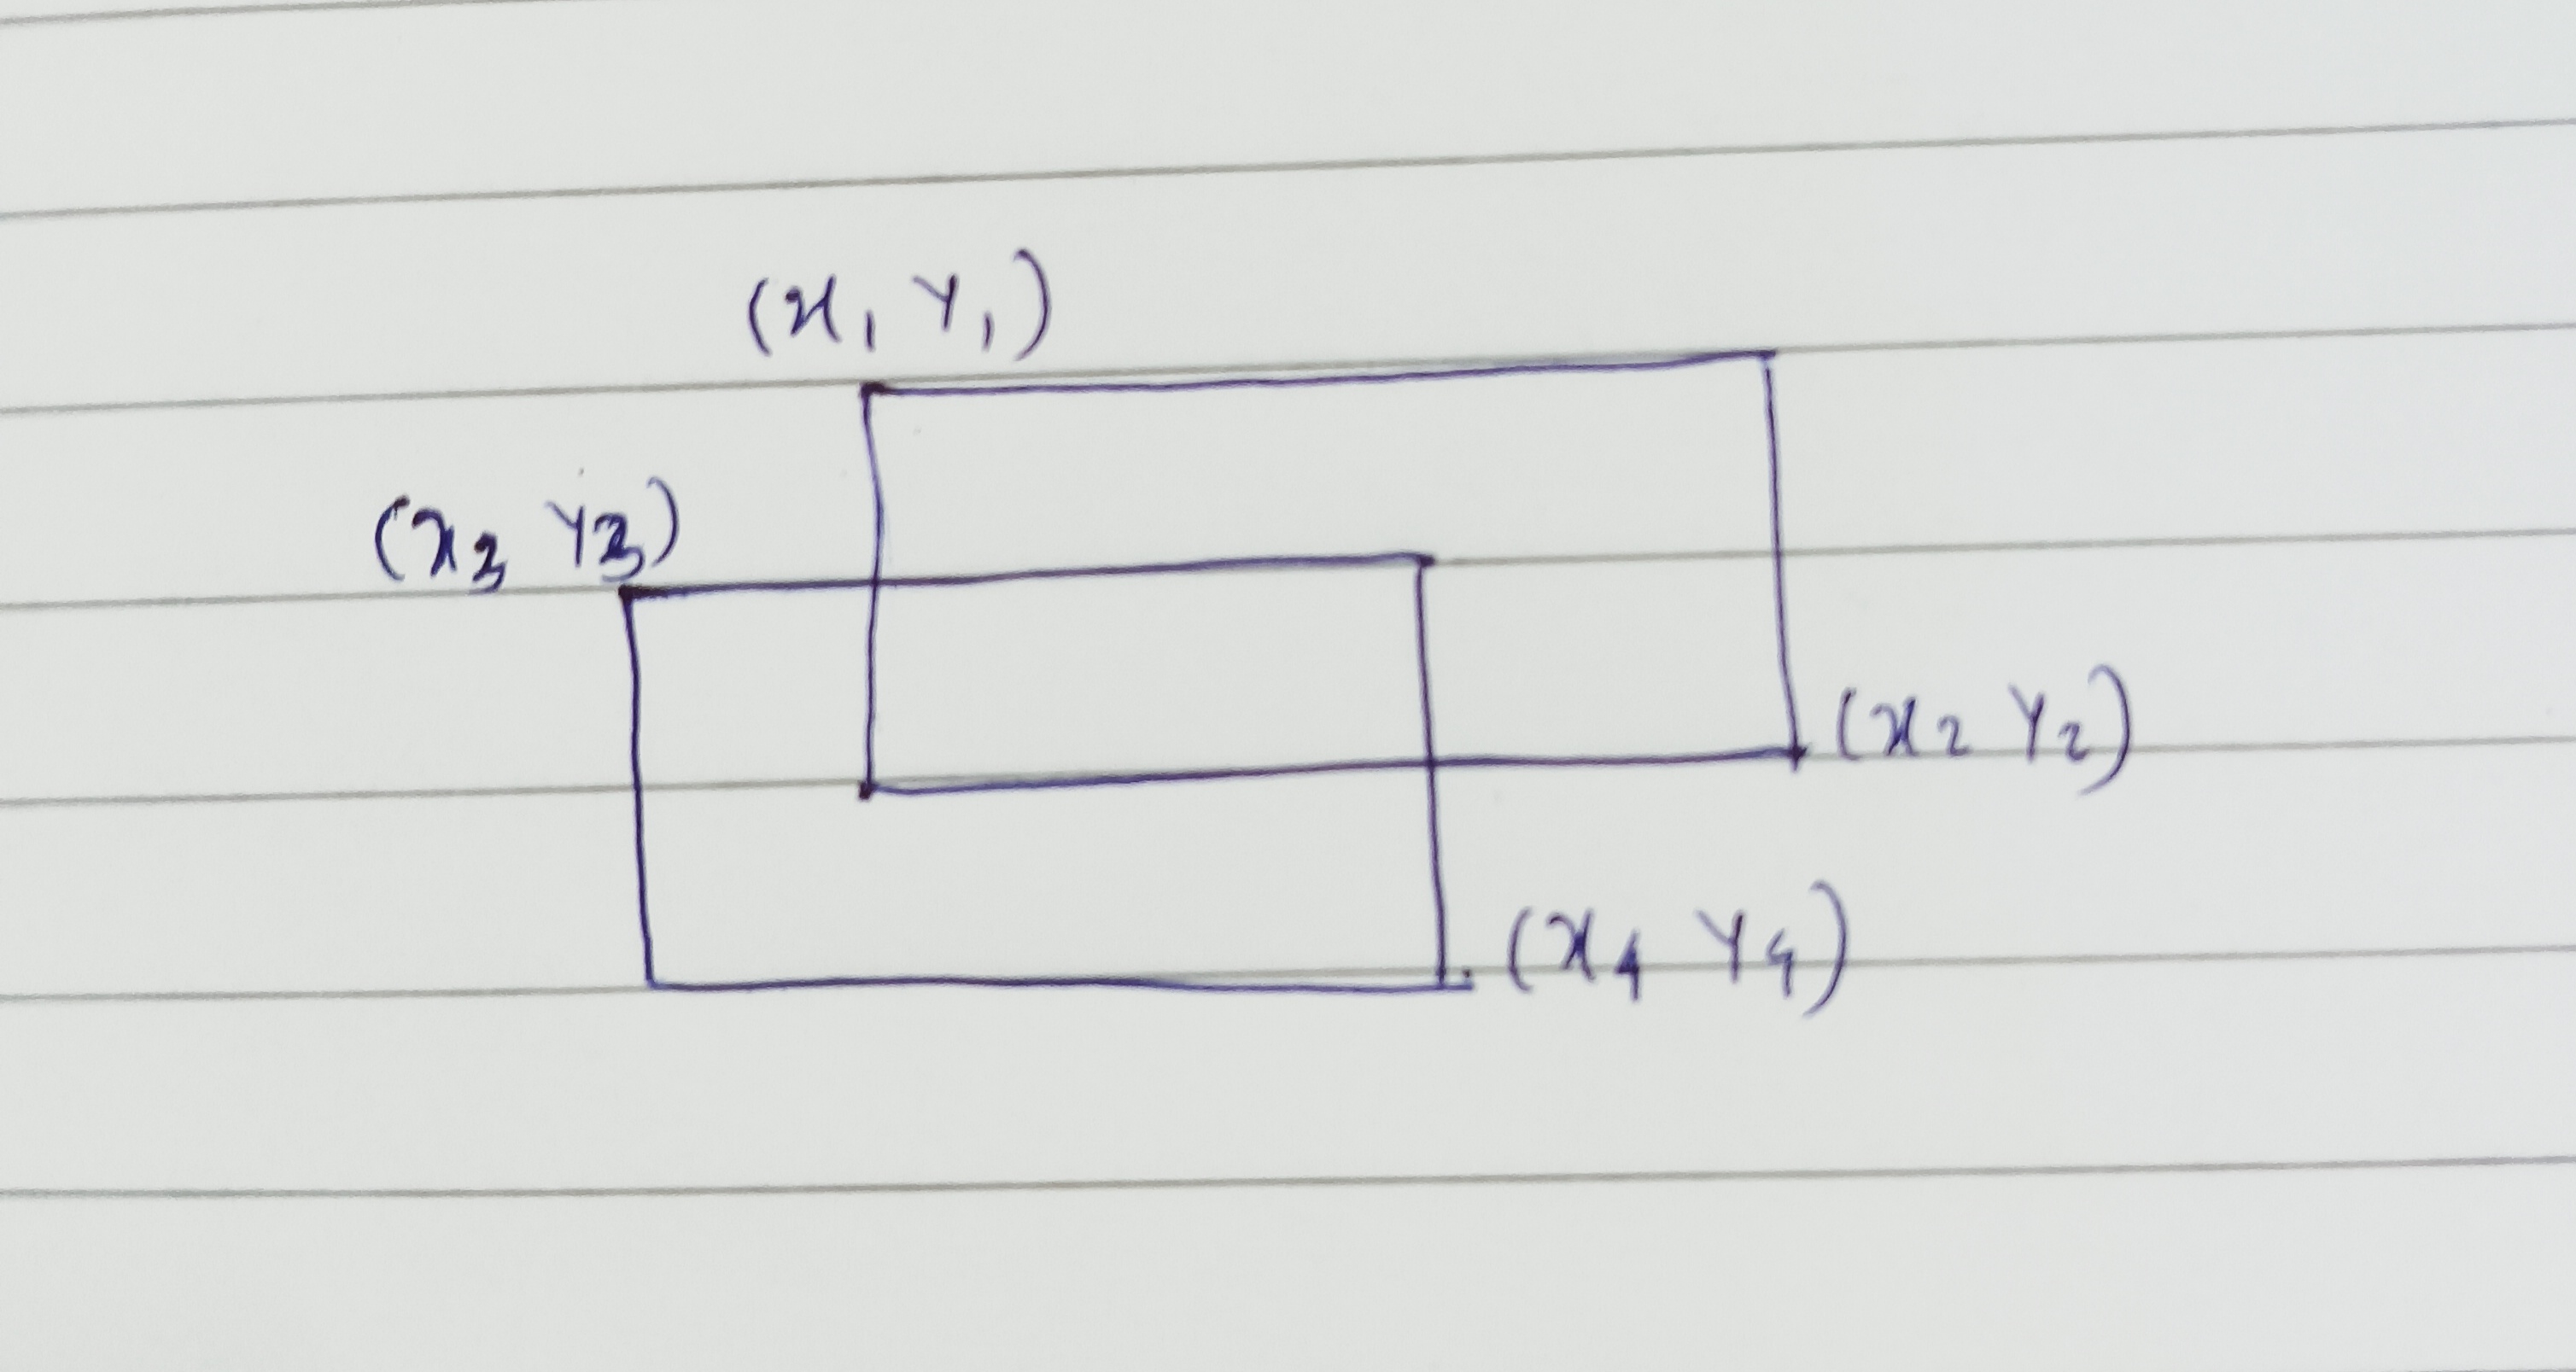 (x1 Y1)
(x3 Y3)
(x2 Y2)
(x4 Y4)